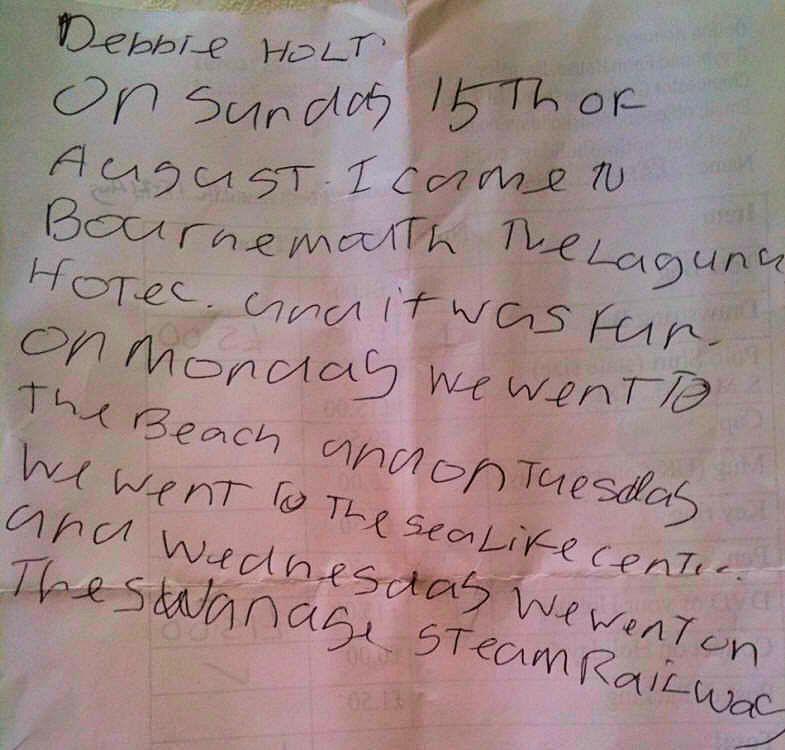 Debbie HOLT
On Sunday 15Th OF
August. I came to
Bournemouth The Laguna
HOTEL. and it was Fun.
On Monday we went To
The Beach and on Tuesday
we went To The sea Life cent
and wednesday we went on
The Swanage Steam Railway